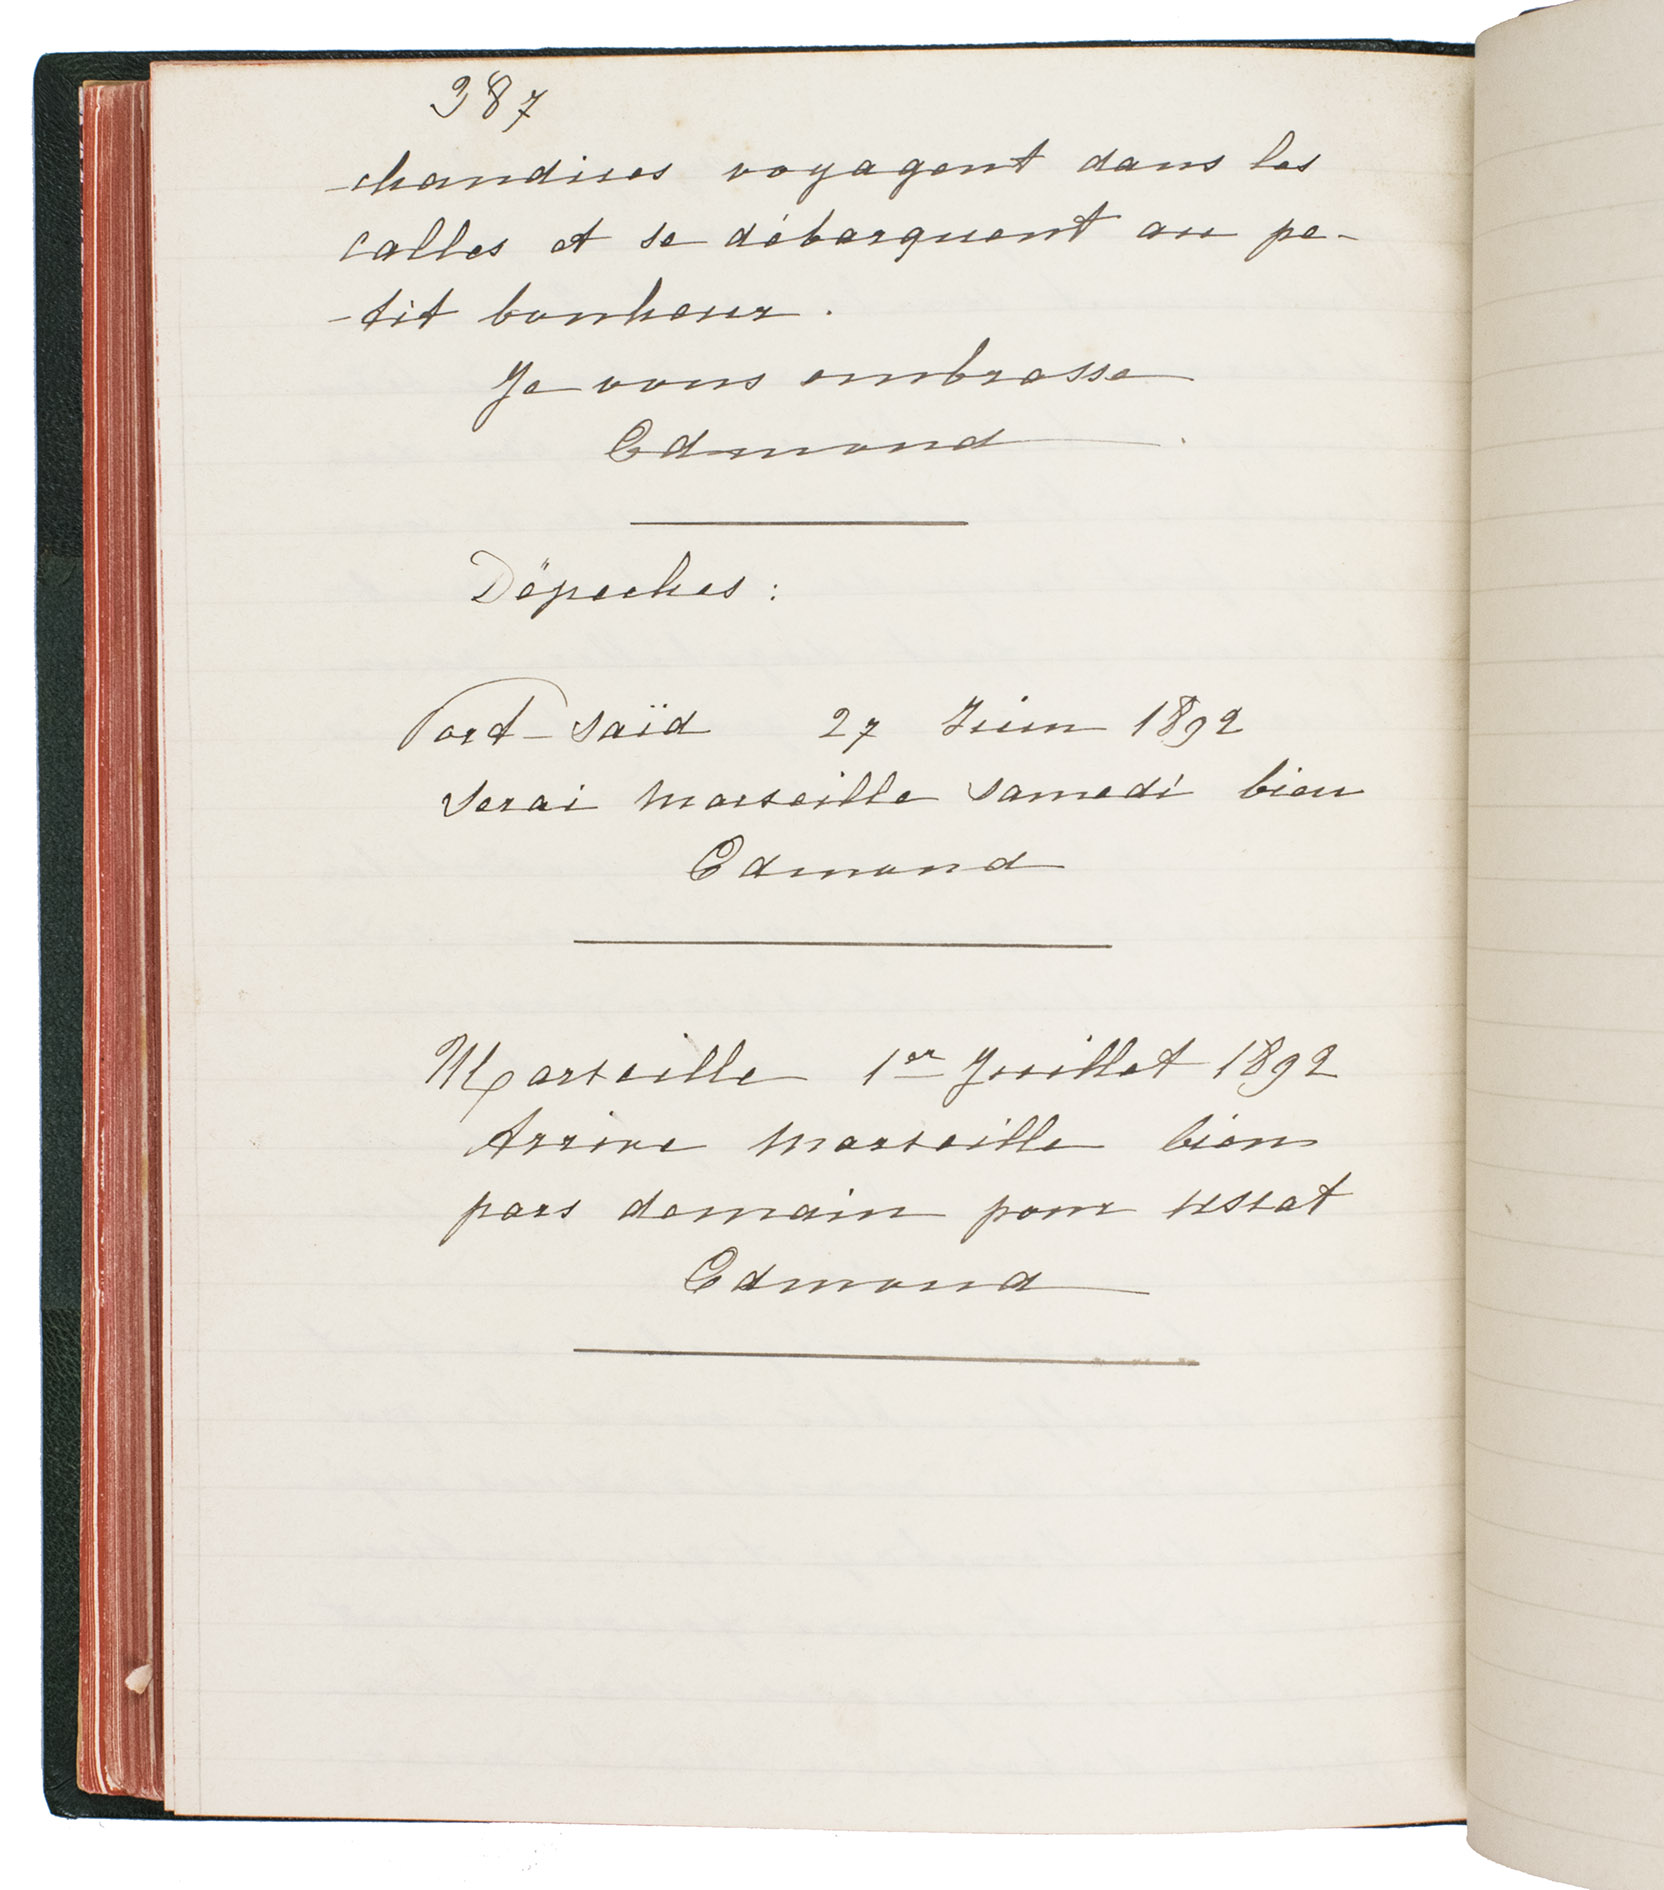 387
-chandises voyagent dans les
calles et se débarquent au pe-
-tit bonheur.
Je vous embrasse
Edmond.
Dépeches:
Port-Saïd 27 Juin 1892
Serai Marseille Samedi bien
Edmond
Marseille 1er Juillet 1892
Arrive Marseille bien
pars demain pour Ussat
Edmond